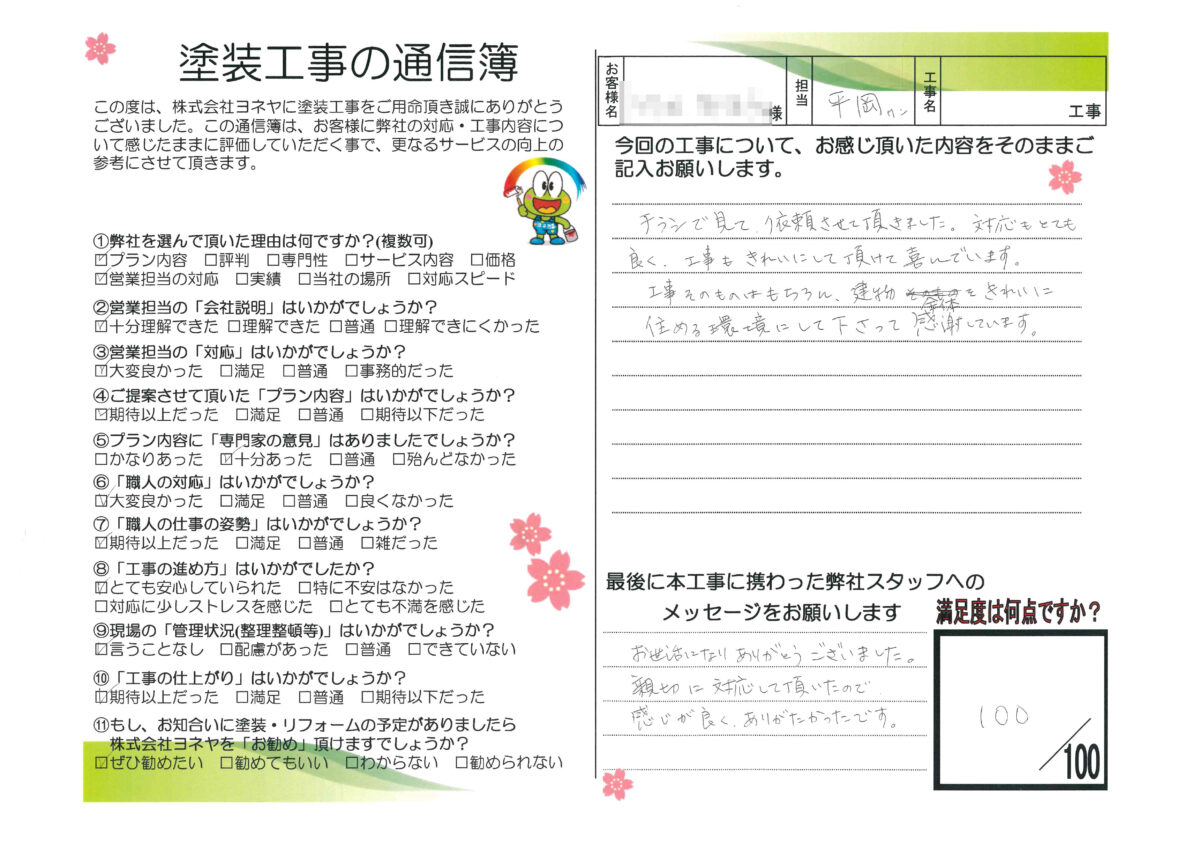 塗装工事の通信簿
この度は、株式会社ヨネヤに塗装工事をご用命頂き誠にありがとう
ございました。この通信簿は、お客様に弊社の対応・工事内容につ
いて感じたままに評価していただく事で、更なるサービスの向上の
参考にさせて頂きます。
①弊社を選んで頂いた理由は何ですか?(複数可)
☑プラン内容 □評判 □専門性 □サービス内容 □価格
☑営業担当の対応 □実績 □当社の場所 □対応スピード
②営業担当の「会社説明」はいかがでしょうか?
☑十分理解できた □理解できた □普通 □理解できにくかった
③営業担当の「対応」はいかがでしょうか?
☑大変良かった □満足 □普通 □事務的だった
④ご提案させて頂いた「プラン内容」はいかがでしょうか?
☑期待以上だった □満足 □普通 □期待以下だった
⑤プラン内容に「専門家の意見」はありましたでしょうか?
□かなりあった ☑十分あった □普通 □殆んどなかった
⑥「職人の対応」はいかがでしょうか?
☑大変良かった □満足 □普通 □良くなかった
⑦「職人の仕事の姿勢」はいかがでしょうか?
☑期待以上だった □満足 □普通 □雑だった
⑧「工事の進め方」はいかがでしたか?
☑とても安心していられた □特に不安はなかった
□対応に少しストレスを感じた □とても不満を感じた
⑨現場の「管理状況(整理整頓等)」はいかがでしょうか?
☑言うことなし □配慮があった □普通 □できていない
⑩「工事の仕上がり」はいかがでしょうか?
☑期待以上だった □満足 □普通 □期待以下だった
⑪もし、お知合いに塗装・リフォームの予定がありましたら
株式会社ヨネヤを「お勧め」頂けますでしょうか?
☑ぜひ勧めたい □勧めてもいい □わからない □勧められない
お客様名 様 担当 平岡サン 工事名 工事
今回の工事について、お感じ頂いた内容をそのままご
記入お願いします。
チラシで見て、依頼させて頂きました。対応もとても
良く、工事もきれいにして頂けて喜んでいます。
工事そのものはもちろん、建物全体をきれいに
住める環境にして下さって感謝しています。
最後に本工事に携わった弊社スタッフへの
メッセージをお願いします
お世話になりありがとうございました。
親切に対応して頂いたので
感じが良く、ありがたかったです。
満足度は何点ですか?
100
/100